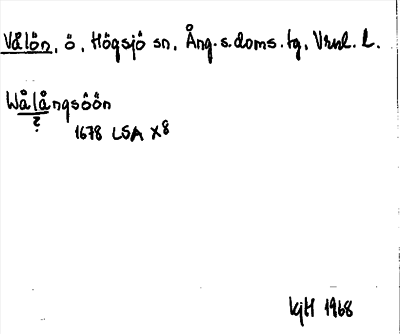 Vålön, ö, Högsjö sn, Ång.s.doms.tg, Vrnl. L.
Wålångsöön
?
1678 LSA X8
KjH 1968